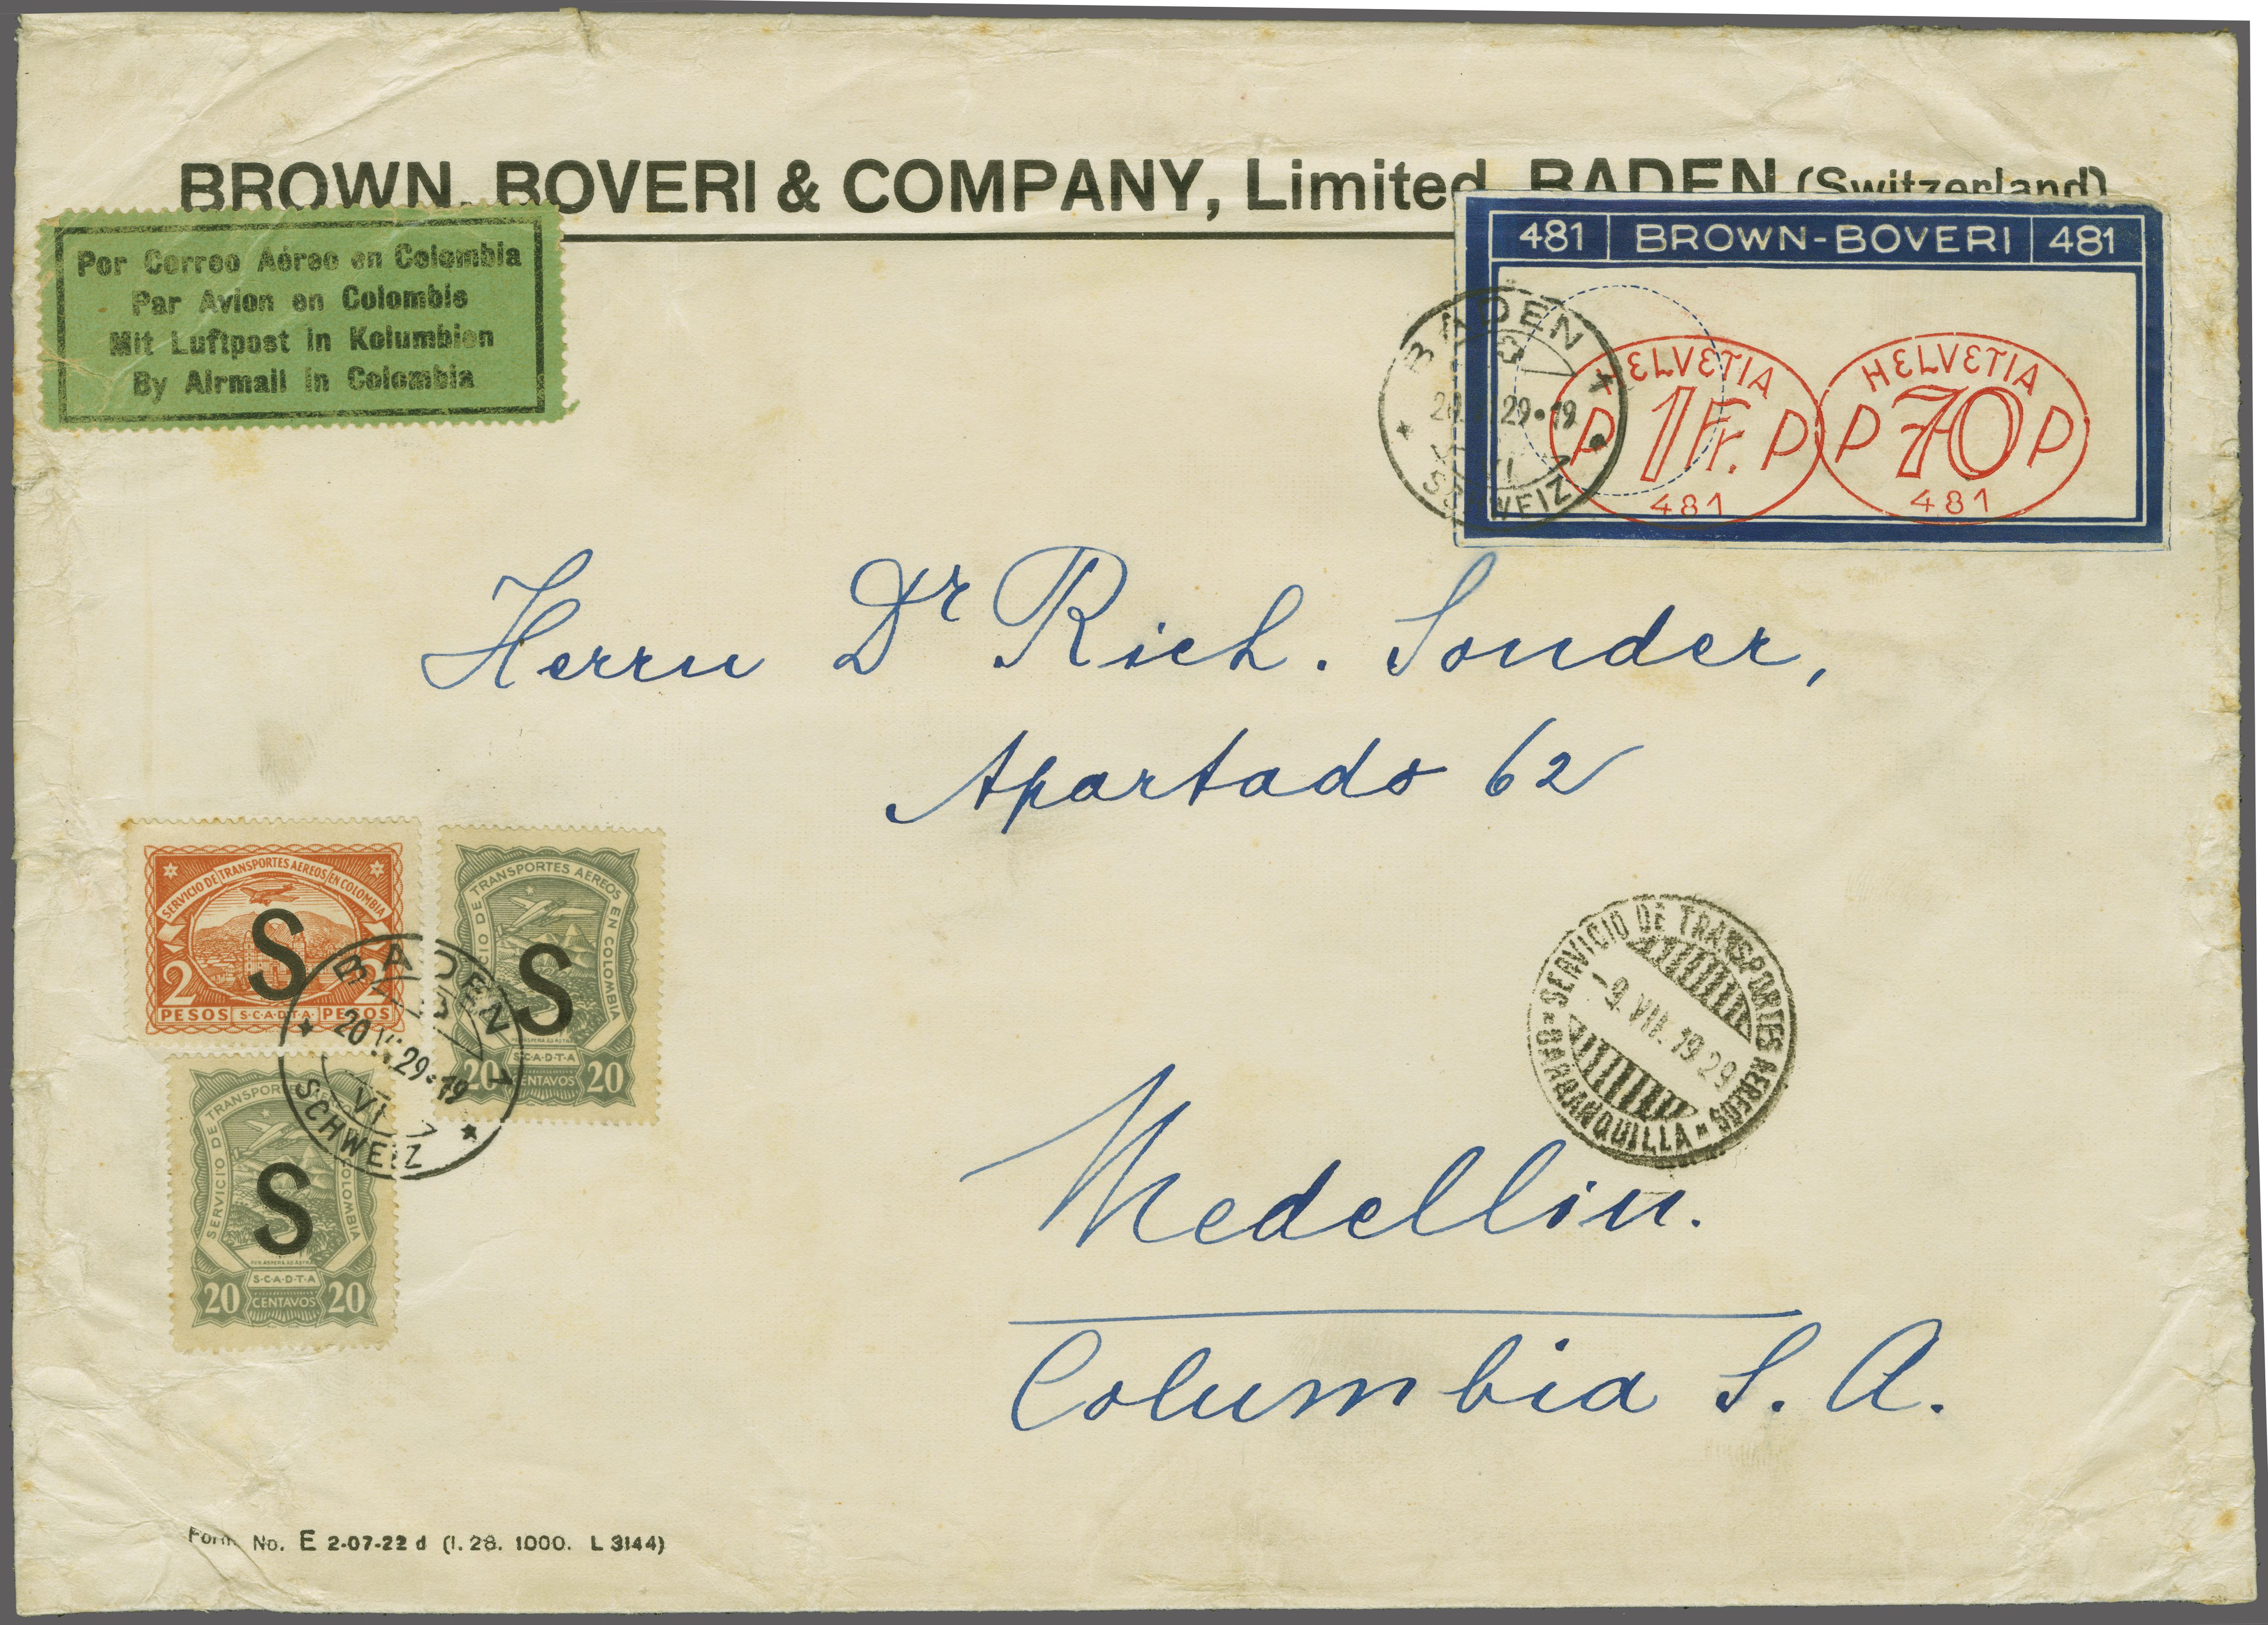 BROWN, BOVERI & COMPANY, Limited, BADEN (Switzerland)
Por Correo Aéreo en Colombia
Par Avion en Colombie
Mit Luftpost in Kolumbien
By Airmail in Colombia
481 BROWN-BOVERI 481
BADEN
29•19
SCHWEIZ
HELVETIA
P 1 Fr. P
481
HELVETIA
P 70 P
481
Herrn Dr Rich. Sonder,
Apartado 62
SERVICIO DE TRANSPORTES AEREOS EN COLOMBIA
S
2 2
PESOS S·C·A·D·T·A· PESOS
SERVICIO DE TRANSPORTES AEREOS EN COLOMBIA
S
S·C·A·D·T·A
20 CENTAVOS 20
BADEN
20.VI.29•19
VI
SCHWEIZ
SERVICIO DE TRANSPORTES AEREOS
-9.VII.1929
BARRANQUILLA
SERVICIO DE TRANSPORTES AEREOS EN COLOMBIA
S
S·C·A·D·T·A
20 CENTAVOS 20
Medellin.
Columbia S. A.
Form No. E 2-07-22 d (I. 28. 1000. L 3144)